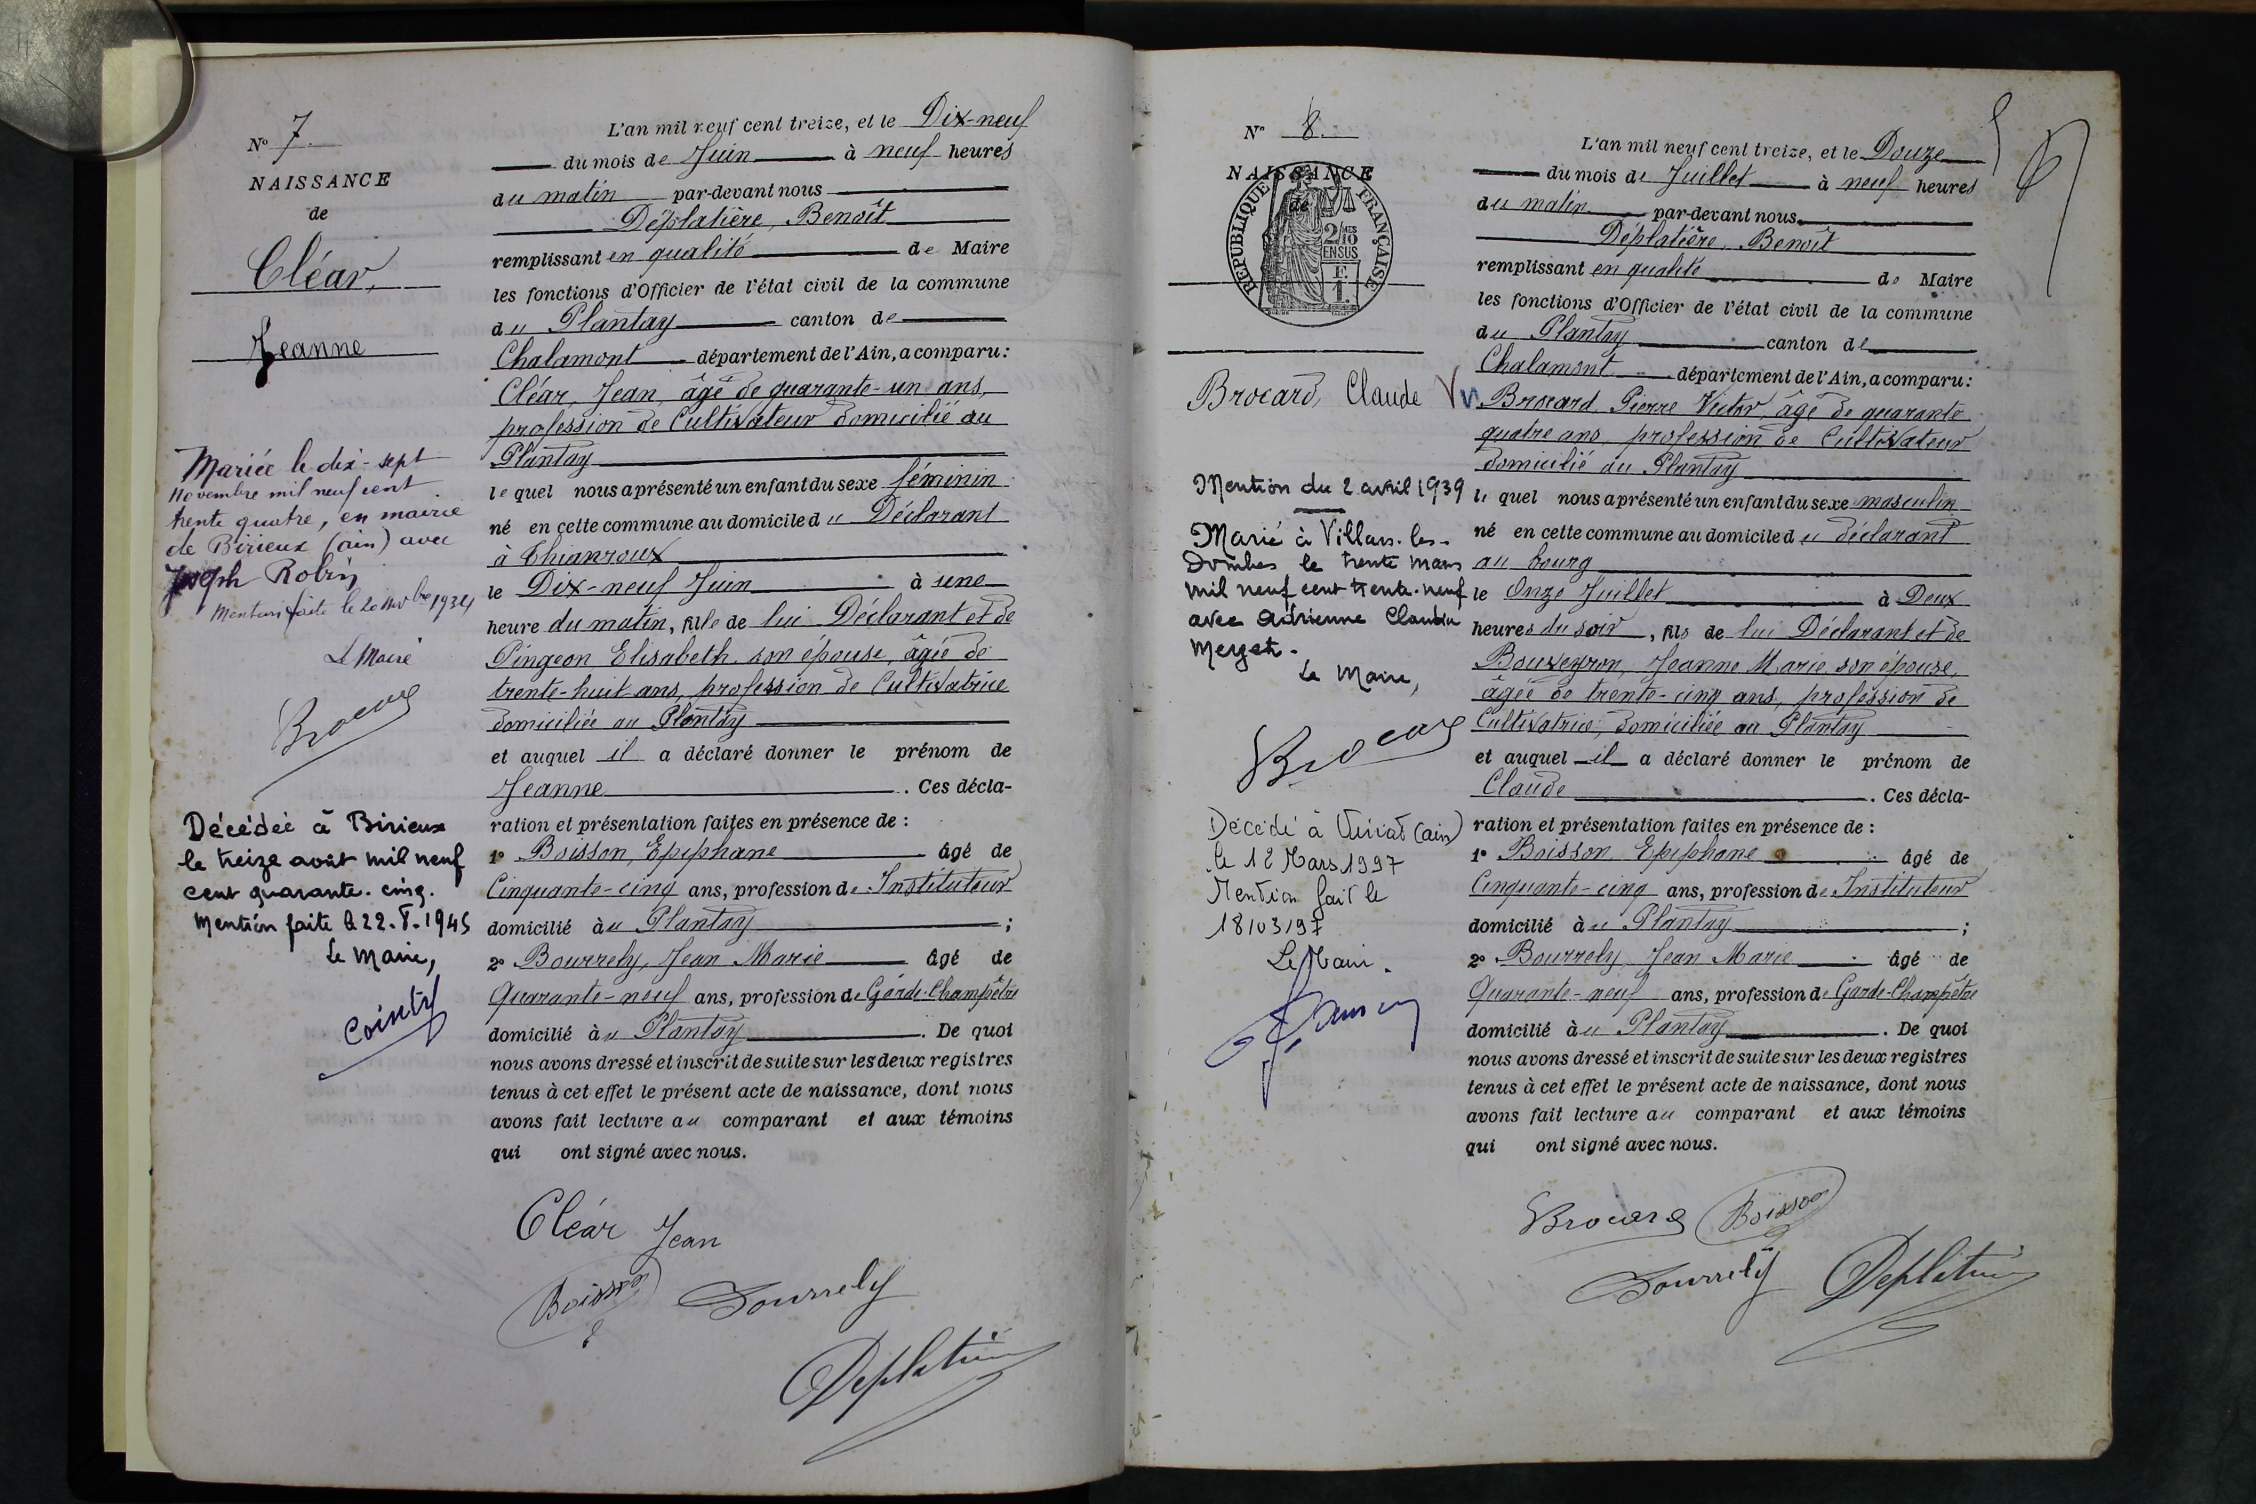 N° 7.
NAISSANCE
de
Cléar,
Jeanne
Mariée le dix-sept
Novembre mil neuf cent
trente quatre, en mairie
de Birieux (ain) avec
Joseph Robin
Mention faite le 20 Nov bre 1934
Le Maire
Brocard
Décédée à Birieux
le treize août mil neuf
cent quarante-cinq.
Mention faite le 22.8.1945
Le Maire,
L'an mil neuf cent treize, et le Dix-neuf
du mois de Juin à neuf heures
du matin par-devant nous
Déplatière, Benoît
remplissant en qualité de Maire
les fonctions d'Officier de l'état civil de la commune
du Plantay canton de
Chalamont département de l'Ain, a comparu:
Cléar, Jean, âgé de quarante-un ans,
profession de Cultivateur domicilié au
Plantay
lequel nous a présenté un enfant du sexe féminin
né en cette commune au domicile du Déclarant
à Chianroux
le Dix-neuf Juin à une
heure du matin, fille de lui Déclarant et de
Pingeon Elisabeth son épouse, âgée de
trente-huit ans, profession de Cultivatrice
domiciliée au Plantay
et auquel il a déclaré donner le prénom de
Jeanne. Ces décla-
ration et présentation faites en présence de :
1° Boisson, Epiphane âgé de
Cinquante-cinq ans, profession de Instituteur
domicilié au Plantay ;
2° Bourrely, Jean Marie âgé de
Quarante-neuf ans, profession de Garde-Champêtre
domicilié au Plantay. De quoi
nous avons dressé et inscrit de suite sur les deux registres
tenus à cet effet le présent acte de naissance, dont nous
avons fait lecture au comparant et aux témoins
qui ont signé avec nous.
Cléar Jean
Boisson Bourrely
Deplatière
N° 8.
NAISSANCE
de
RÉPUBLIQUE FRANÇAISE
2/10 MES
EN SUS
F.
1.
Brocard, Claude
Mention du 2 avril 1939
Marié à Villars-les-
Dombes le trente mars
mil neuf cent trente-neuf
avec Adrienne Claudia
Merget.
Le Maire,
Brocard
Décédé à Viriat (ain)
le 12 Mars 1997
Mention fait le
18/03/97
Le Maire.
L'an mil neuf cent treize, et le Douze
du mois de Juillet à neuf heures
du matin par-devant nous
Déplatière, Benoît
remplissant en qualité de Maire
les fonctions d'Officier de l'état civil de la commune
du Plantay canton de
Chalamont département de l'Ain, a comparu:
Brocard Pierre Victor, âgé de quarante
quatre ans, profession de Cultivateur
domicilié au Plantay
lequel nous a présenté un enfant du sexe masculin
né en cette commune au domicile du déclarant
au bourg
le Onze Juillet à Deux
heures du soir, fils de lui Déclarant et de
Bouveyron, Jeanne Marie son épouse,
âgée de trente-cinq ans, profession de
Cultivatrice, domiciliée au Plantay
et auquel il a déclaré donner le prénom de
Claude. Ces décla-
ration et présentation faites en présence de :
1° Boisson Epiphane âgé de
Cinquante-cinq ans, profession de Instituteur
domicilié au Plantay ;
2° Bourrely Jean Marie âgé de
Quarante-neuf ans, profession de Garde-Champêtre
domicilié au Plantay. De quoi
nous avons dressé et inscrit de suite sur les deux registres
tenus à cet effet le présent acte de naissance, dont nous
avons fait lecture au comparant et aux témoins
qui ont signé avec nous.
Brocard Boisson
Bourrely Deplatière